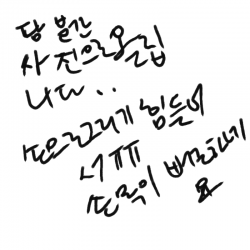 당 분간
사진으로올립
니다..
손으로그리기 힘들어
서ㅠㅠ
손목이
요